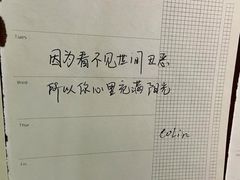 Tues
因为看不见世间丑恶
Wed
所以你心里充满阳光
Thur
colin
Fri